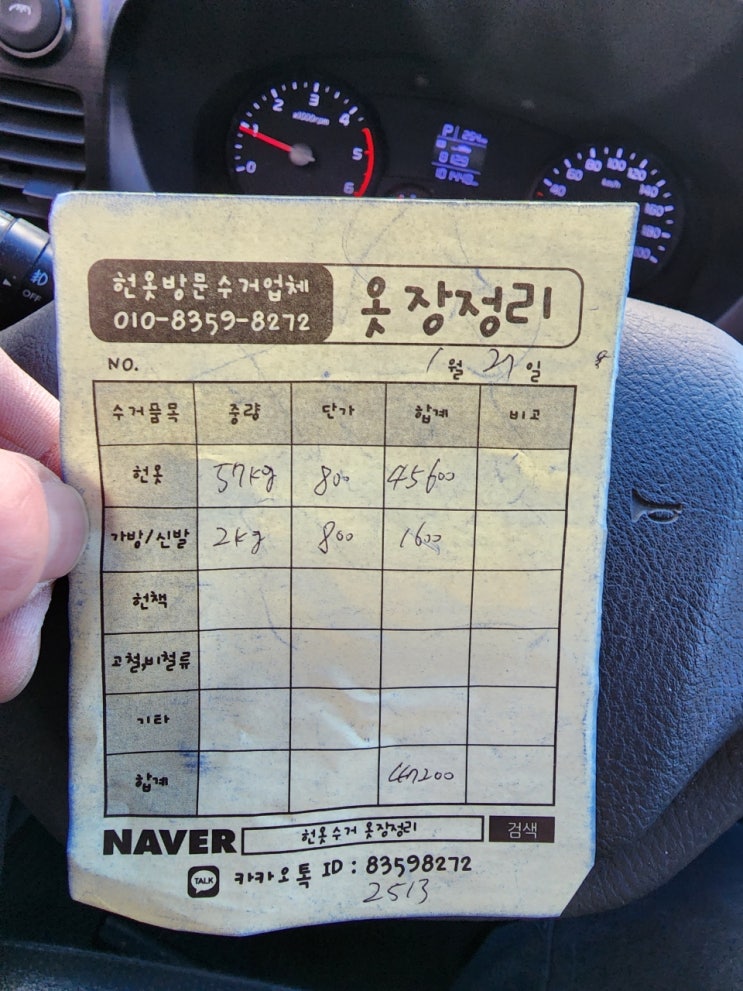 헌옷방문수거업체
010-8359-8272
옷장정리
NO. 1월 27일
수거품목 중량 단가 합계 비고
헌옷 57kg 800 45600
가방/신발 2kg 800 1600
헌책
고철,비철류
기타
합계 47200
NAVER 헌옷수거 옷장정리 검색
TALK 카카오톡 ID : 83598272
2513
OFF
0 1 2 3 4 5 6
x1000rpm
P
km/h
60 80 100 120 140 160 180